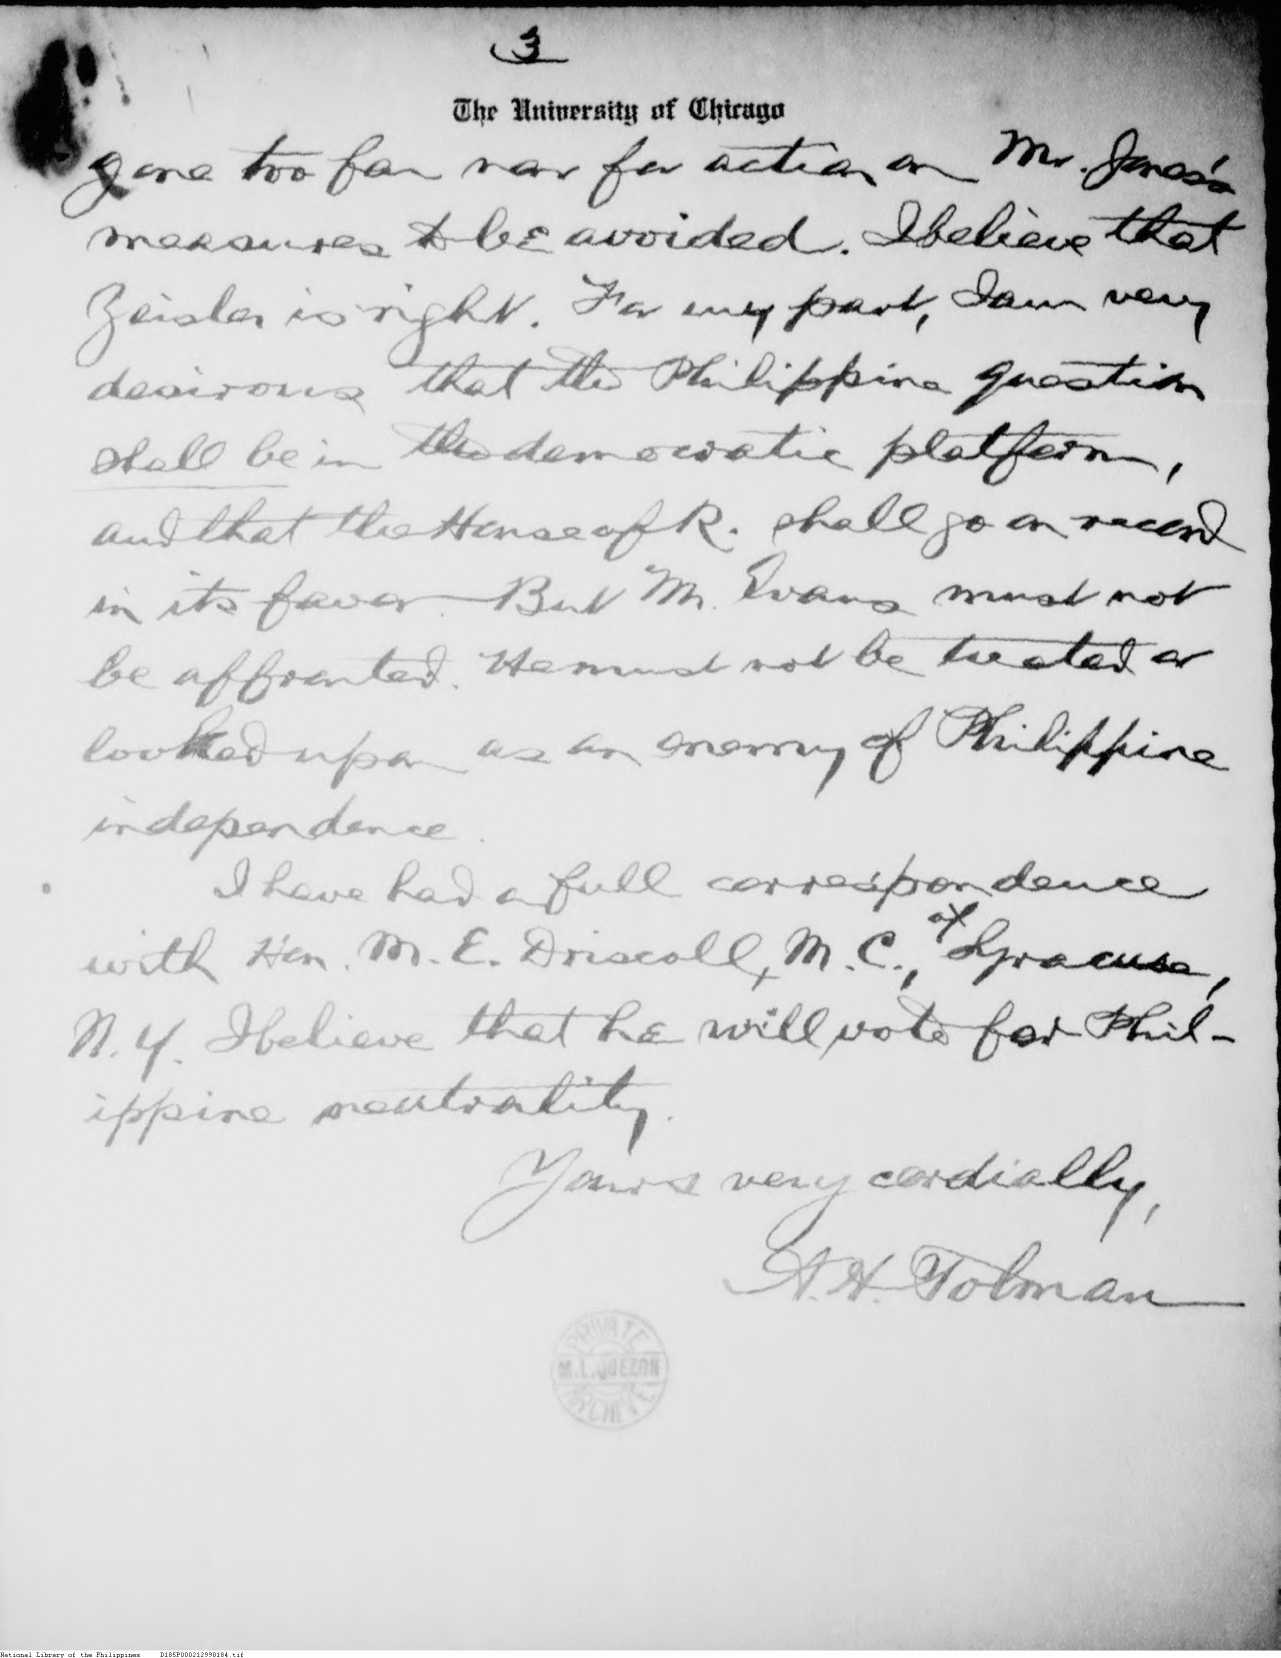 3
The University of Chicago
gone too far now for action on Mr. Jones's
measures to be avoided. I believe that
Zeisler is right. For my part, I am very
desirous that the Philippine question
shall be in the democratic platform,
and that the House of R. shall go on record
in its favor. But Mr. Evans must not
be affronted. He must not be treated or
looked upon as an enemy of Philippine
independence.
I have had a full correspondence
with Hon. M. E. Driscoll, M. C., of Syracuse,
N. Y. I believe that he will vote for Phil-
ippine neutrality.
Yours very cordially,
A. H. Tolman
PRIVATE
M. L. QUEZON
ARCHIVE
National Library of the Philippines D185P000212998184.tif